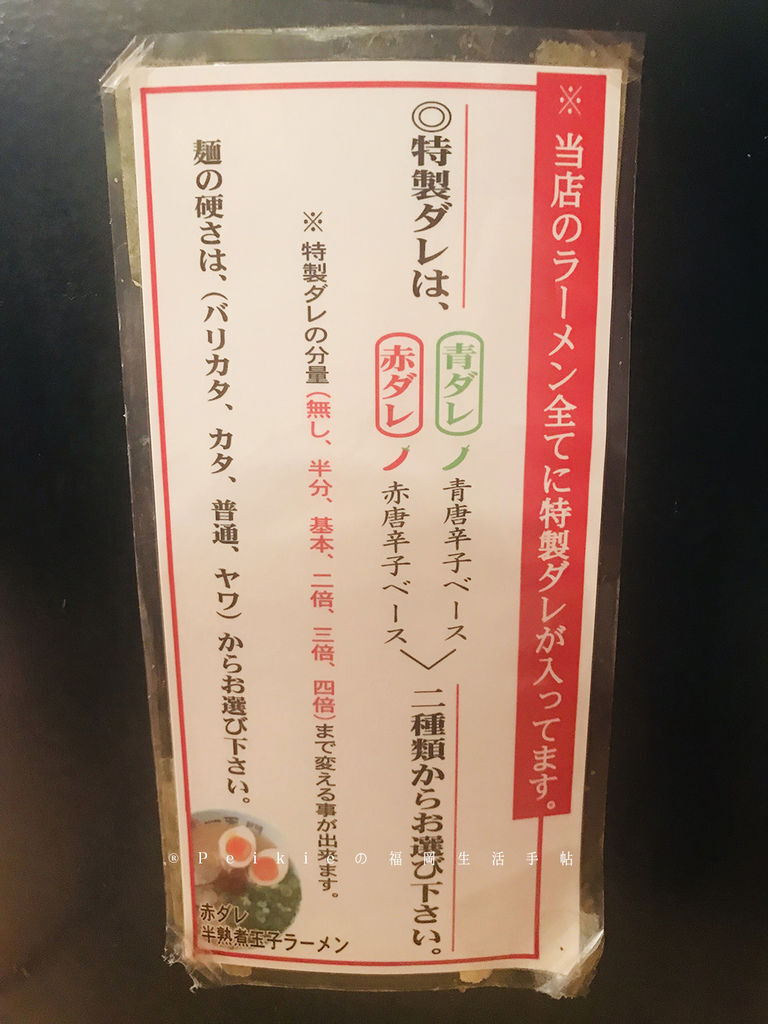 ※当店のラーメン全てに特製ダレが入ってます。
◎特製ダレは、
青ダレ 青唐辛子ベース
赤ダレ 赤唐辛子ベース
二種類からお選び下さい。
※特製ダレの分量(無し、半分、基本、二倍、三倍、四倍)まで変える事が出来ます。
麺の硬さは、(バリカタ、カタ、普通、ヤワ)からお選び下さい。
赤ダレ
半熟煮玉子ラーメン
®Peikieの福岡生活手帖